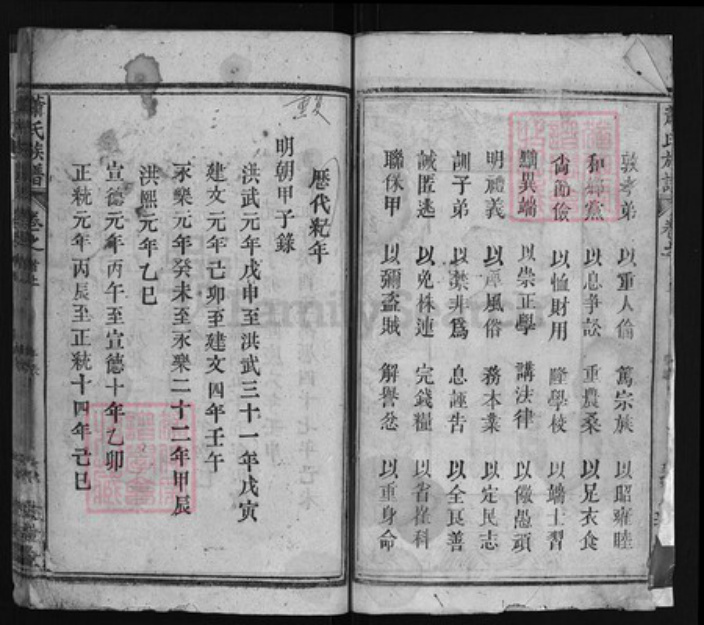 敦孝弟 以重人倫 篤宗族 以昭雍睦
和鄉黨 以息爭訟 重農桑 以足衣食
尚節儉 以惜財用 隆學校 以端士習
黜異端 以崇正學 講法律 以儆愚頑
明禮義 以厚風俗 務本業 以定民志
訓子弟 以禁非爲 息誣告 以全良善
誡匿逃 以免株連 完錢糧 以省催科
聯保甲 以弭盜賊 解讐忿 以重身命
歷代紀年
明朝甲子錄
洪武元年戊申至洪武三十一年戊寅
建文元年己卯至建文四年壬午
永樂元年癸未至永樂二十二年甲辰
洪熙元年乙巳
宣德元年丙午至宣德十年乙卯
正統元年丙辰至正統十四年己巳
蕭氏族譜
FamilySearch